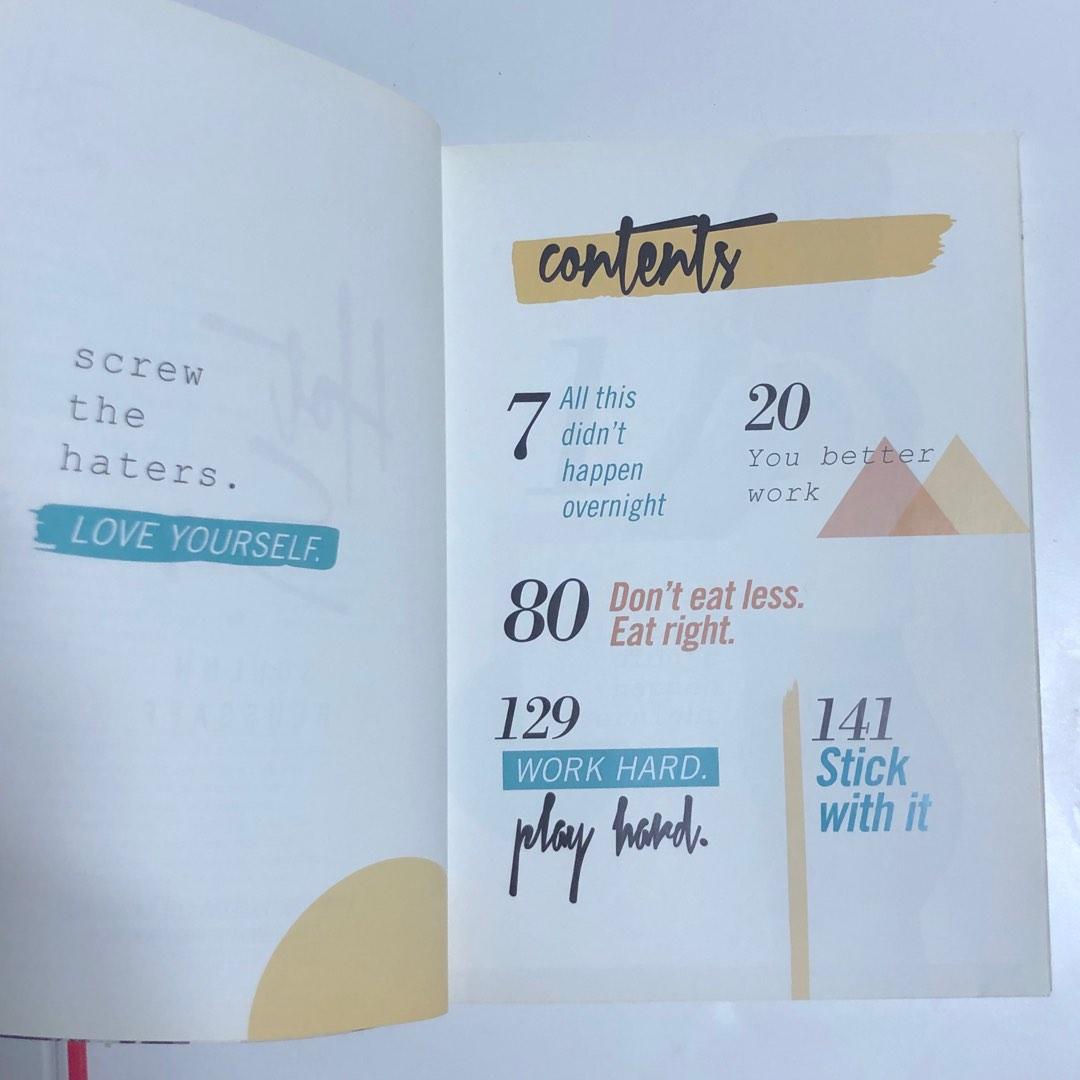 screw
the
haters.
LOVE YOURSELF.
contents
7
All this
didn't
happen
overnight
20
You better
work
80
Don't eat less.
Eat right.
129
WORK HARD.
play hard.
141
Stick
with it